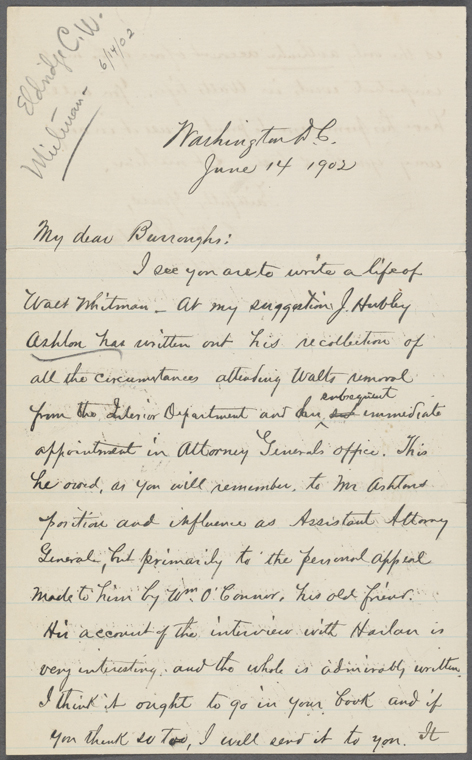 Eldridge C. W.
6/14/02
Whitman -
Washington D.C.
June 14 1902
My dear Burroughs:
I see you are to write a life of
Walt Whitman - At my suggestion J. Hubley
Ashton has written out his recollection of
all the circumstances attending Walts removal
subsequent
from the Interior Department and his immediate
appointment in Attorney Generals office. This
he owed, as you will remember, to Mr Ashtons
position and influence as Assistant Attorney
General, but primarily to the personal appeal
made to him by Wm O'Connor, his old friend.
His account of the interview with Harlan is
very interesting and the whole is admirably written.
I think it ought to go in your book and if
you think so too, I will send it to you. It